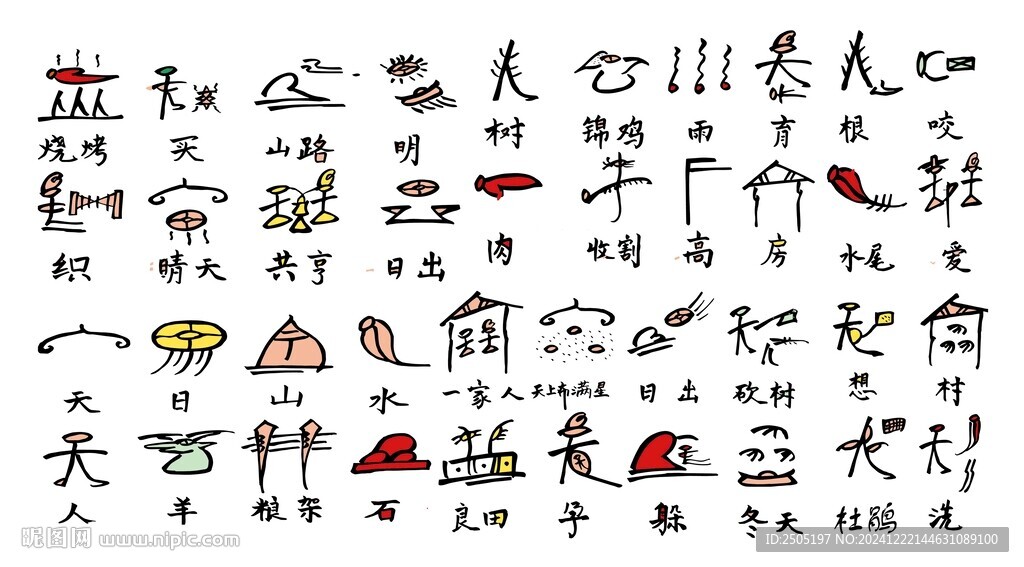 烧烤 买 山路 明 树 锦鸡 雨 育 根 咬
织 晴天 共享 日出 肉 收割 高 房 水尾 爱
天 日 山 水 一家人 天上布满星 日出 砍树 想 村
人 羊 粮架 石 良田 孕 躲 冬天 杜鹃 洗
昵图网 www.nipic.com
ID:2505197 NO:20241222144631089100